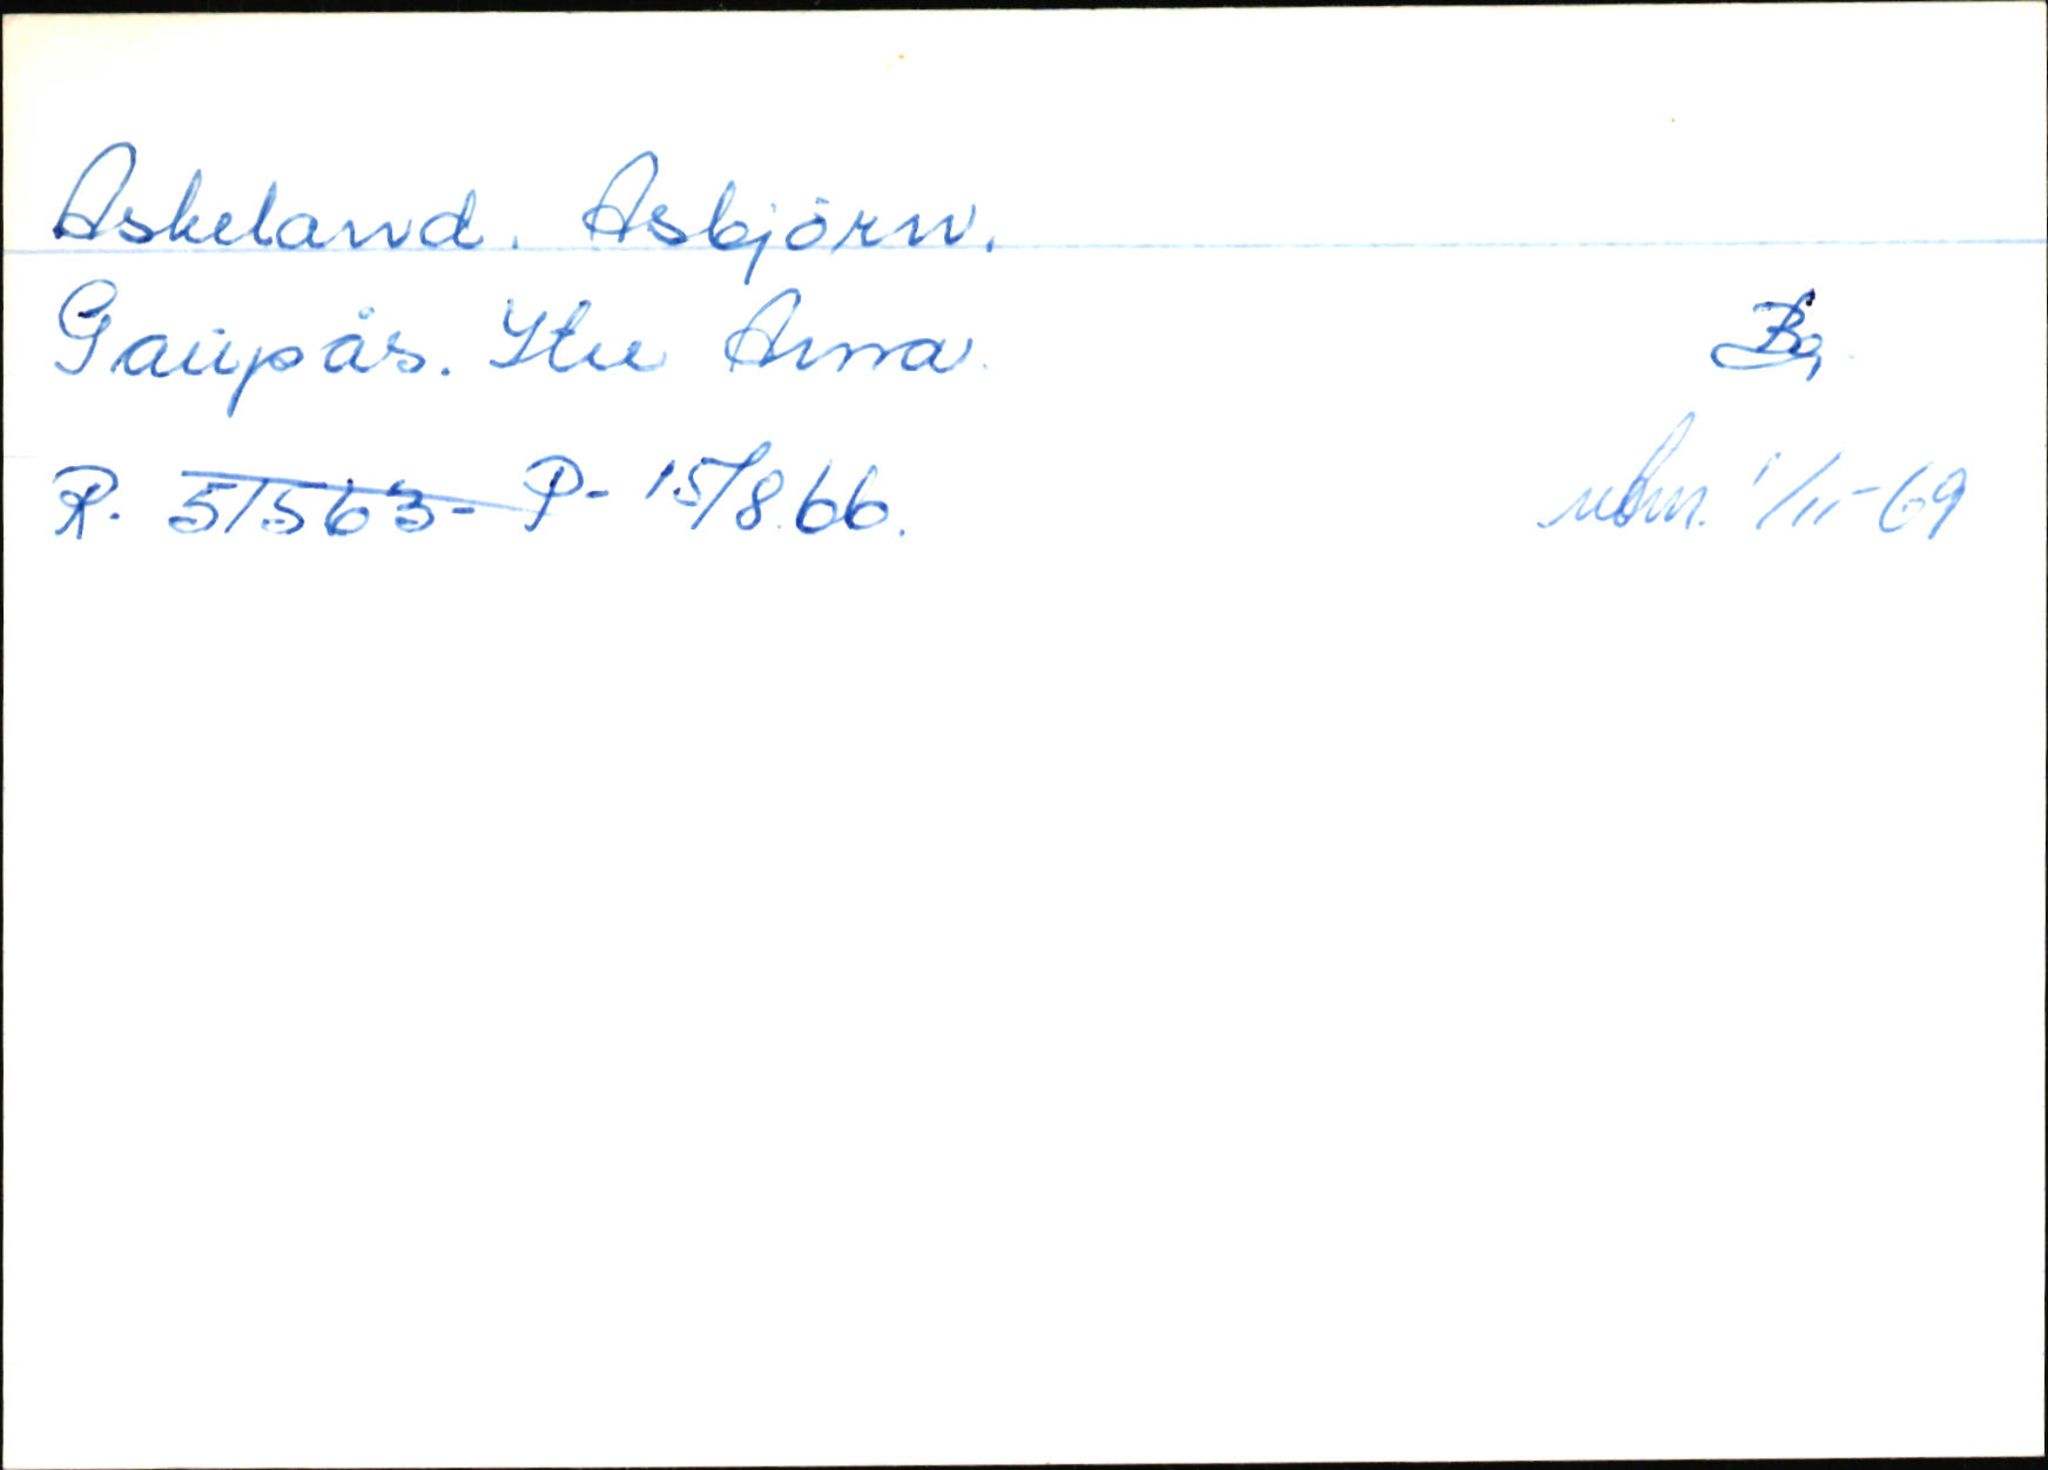 Askeland. Asbjörn.
Gaupås. Ytre Arna.
Bg
R. 51563- P- 15/8.66.
1/11-69